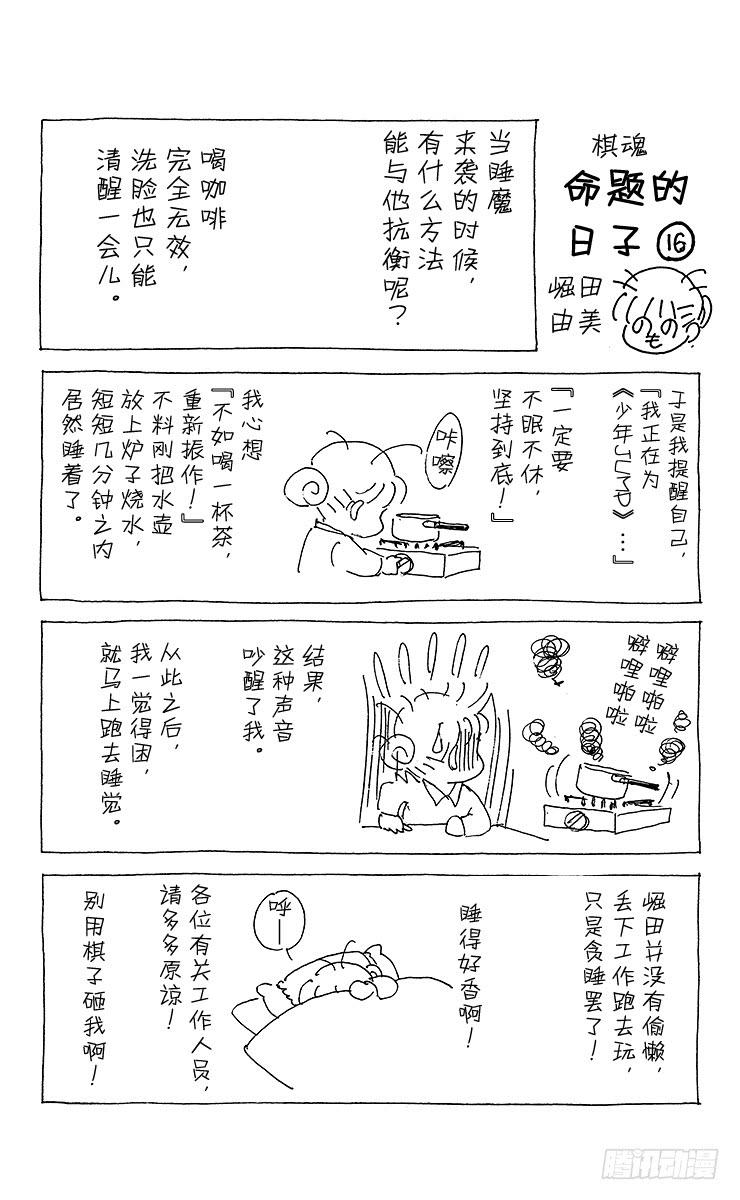 棋魂
命题的
日子⑯
崛田
由美
のもの
当睡魔
来袭的时候，
有什么方法
能与他抗衡呢？
喝咖啡
完全无效，
洗脸也只能
清醒一会儿。
于是我提醒自己，
『我正在为
《少年JUMP》…』
『一定要
不眠不休，
坚持到底！』
咔嚓
我心想
『不如喝一杯茶，
重新振作！』
不料刚把水壶
放上炉子烧水，
短短几分钟之内
居然睡着了。
噼哩啪啦
噼哩啪啦
结果，
这种声音
吵醒了我。
从此之后，
我一觉得困，
就马上跑去睡觉。
崛田并没有偷懒，
丢下工作跑去玩，
只是贪睡罢了！
睡得好香啊！
呼—
各位有关工作人员，
请多多原谅！
别用棋子砸我啊！
腾讯动漫